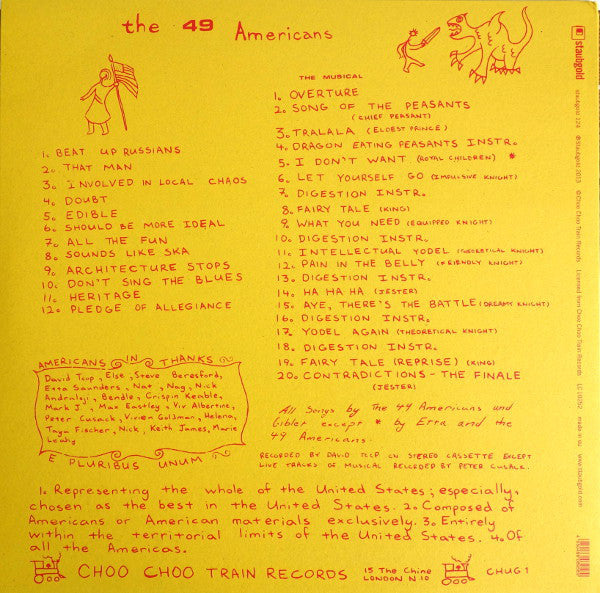 the 49 Americans
staubgold
staubgold 124
℗ Staubgold 2013
© Choo Choo Train Records
Licensed from Choo Choo Train Records
LC 02052
made in eu
www.staubgold.com
1. BEAT UP RUSSIANS
2. THAT MAN
3. INVOLVED IN LOCAL CHAOS
4. DOUBT
5. EDIBLE
6. SHOULD BE MORE IDEAL
7. ALL THE FUN
8. SOUNDS LIKE SKA
9. ARCHITECTURE STOPS
10. DON'T SING THE BLUES
11. HERITAGE
12. PLEDGE OF ALLEGIANCE
THE MUSICAL
1. OVERTURE
2. SONG OF THE PEASANTS
(CHIEF PEASANT)
3. TRALALA (ELDEST PRINCE)
4. DRAGON EATING PEASANTS INSTR.
5. I DON'T WANT (ROYAL CHILDREN) *
6. LET YOURSELF GO (IMPULSIVE KNIGHT)
7. DIGESTION INSTR.
8. FAIRY TALE (KING)
9. WHAT YOU NEED (EQUIPPED KNIGHT)
10. DIGESTION INSTR.
11. INTELLECTUAL YODEL (THEORETICAL KNIGHT)
12. PAIN IN THE BELLY (FRIENDLY KNIGHT)
13. DIGESTION INSTR.
14. HA HA HA (JESTER)
15. AYE, THERE'S THE BATTLE (DREAMY KNIGHT)
16. DIGESTION INSTR.
17. YODEL AGAIN (THEORETICAL KNIGHT)
18. DIGESTION INSTR.
19. FAIRY TALE (REPRISE) (KING)
20. CONTRADICTIONS - THE FINALE
(JESTER)
AMERICANS IN THANKS
David Toop, Else, Steve Beresford,
Etta Saunders, Nat, Nag, Nick
Andraloji, Bendle, Crispin Keable,
Mark J, Max Eastley, Viv Albertine,
Peter Cusack, Vivien Goldman, Helena,
Taya Fischer, Nick, Keith James, Marie
Leahy
E PLURIBUS UNUM
All Songs by The 49 Americans and
Giblet except * by Etta and the
49 Americans.
RECORDED BY DAVID TOOP ON STEREO CASSETTE EXCEPT
LIVE TRACKS OF MUSICAL RECORDED BY PETER CUSACK.
1. Representing the whole of the United States; especially,
chosen as the best in the United States. 2. Composed of
Americans or American materials exclusively. 3. Entirely
within the territorial limits of the United States. 4. Of
all the Americas.
CHOO CHOO TRAIN RECORDS
15 The Chine
LONDON N10
CHUG 1